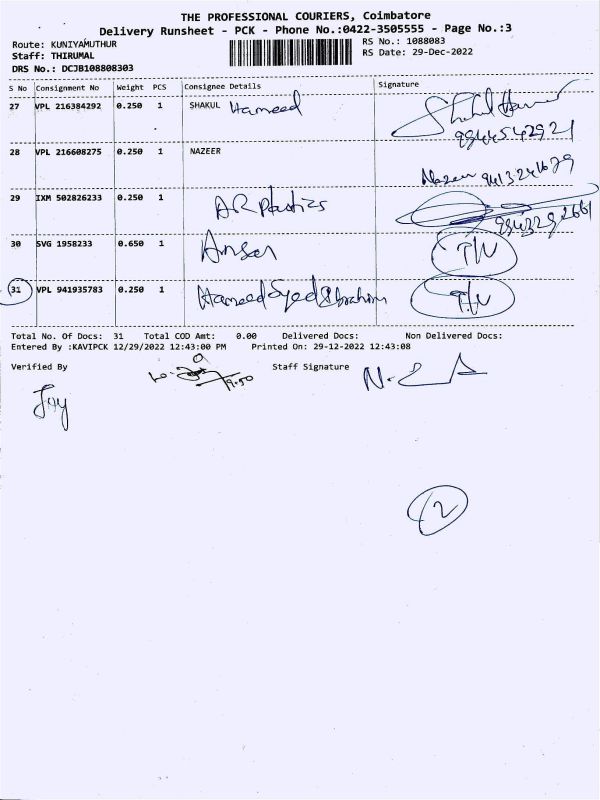 THE PROFESSIONAL COURIERS, Coimbatore
Delivery Runsheet - PCK - Phone No.:0422-3505555 - Page No.:3
Route: KUNIYAMUTHUR RS No.: 1088083
Staff: THIRUMAL RS Date: 29-Dec-2022
DRS No.: DCJB108808303
S No Consignment No Weight PCS Consignee Details Signature
27 VPL 216384292 0.250 1 SHAKUL Hameed
28 VPL 216608275 0.250 1 NAZEER Nazeer
29 IXM 502826233 0.250 1 AR Plastics
30 SVG 1958233 0.650 1 Ansar
31 VPL 941935783 0.250 1 Hameed Syed Ibrahim
Total No. Of Docs: 31 Total COD Amt: 0.00 Delivered Docs: Non Delivered Docs:
Entered By :KAVIPCK 12/29/2022 12:43:00 PM Printed On: 29-12-2022 12:43:08
Verified By Staff Signature
Joy
2